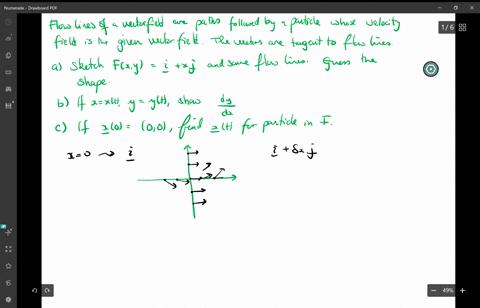 Numerade - Drawboard PDF
1/6
Flow lines of a vectorfield are paths followed by a particle whose velocity
field is the given vectorfield. The vectors are tangent to flow lines.
a) Sketch F(x,y) = i + xj and some flow lines. Guess the
shape.
b) If x=x(t), y=y(t), show dy/dx
c) If x(0) = (0,0), find x(t) for particle in F.
x=0 ⇝ i
i + 8x j
49%